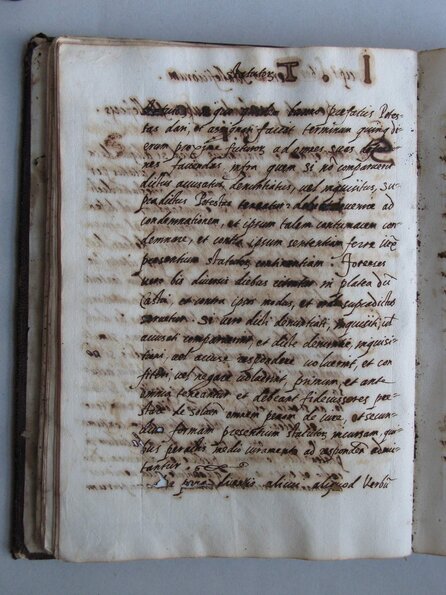 Statutor
tas dari, et assignari faciat terminum quinq di
erum proxime futuror, ad omnes suas defensio
nes faciendas infra quem si nõ comparuerit
dictus accusatus, denuntiatus, vel inquisitus, su
pradictus Potestas ad
condemnationem, et ipsum talem contumacem con
demnare, et contra ipsum sententiam ferre iuxta
presentium statutor continentiam. Forenses
vero bis diversis diebus in platea dti
Castri, et contra ipsos modus, et supradictus
servetur. Si vero dicti denuntiati, inquisiti, vel
accusati comparuerint, et dicte denuntiae, inquisi
tioni, vel accuse respondere voluerint, et con
fiteri, vel negare voluerint, primum, et ante
omnia teneantur et debeant fideiussores pre
stare de solven omnem penam de iure, et secun
dum formam presentium statutor
medio iuramento ad respondem admi
tantur.
De pena dicentis alicui aliquod Verbũ